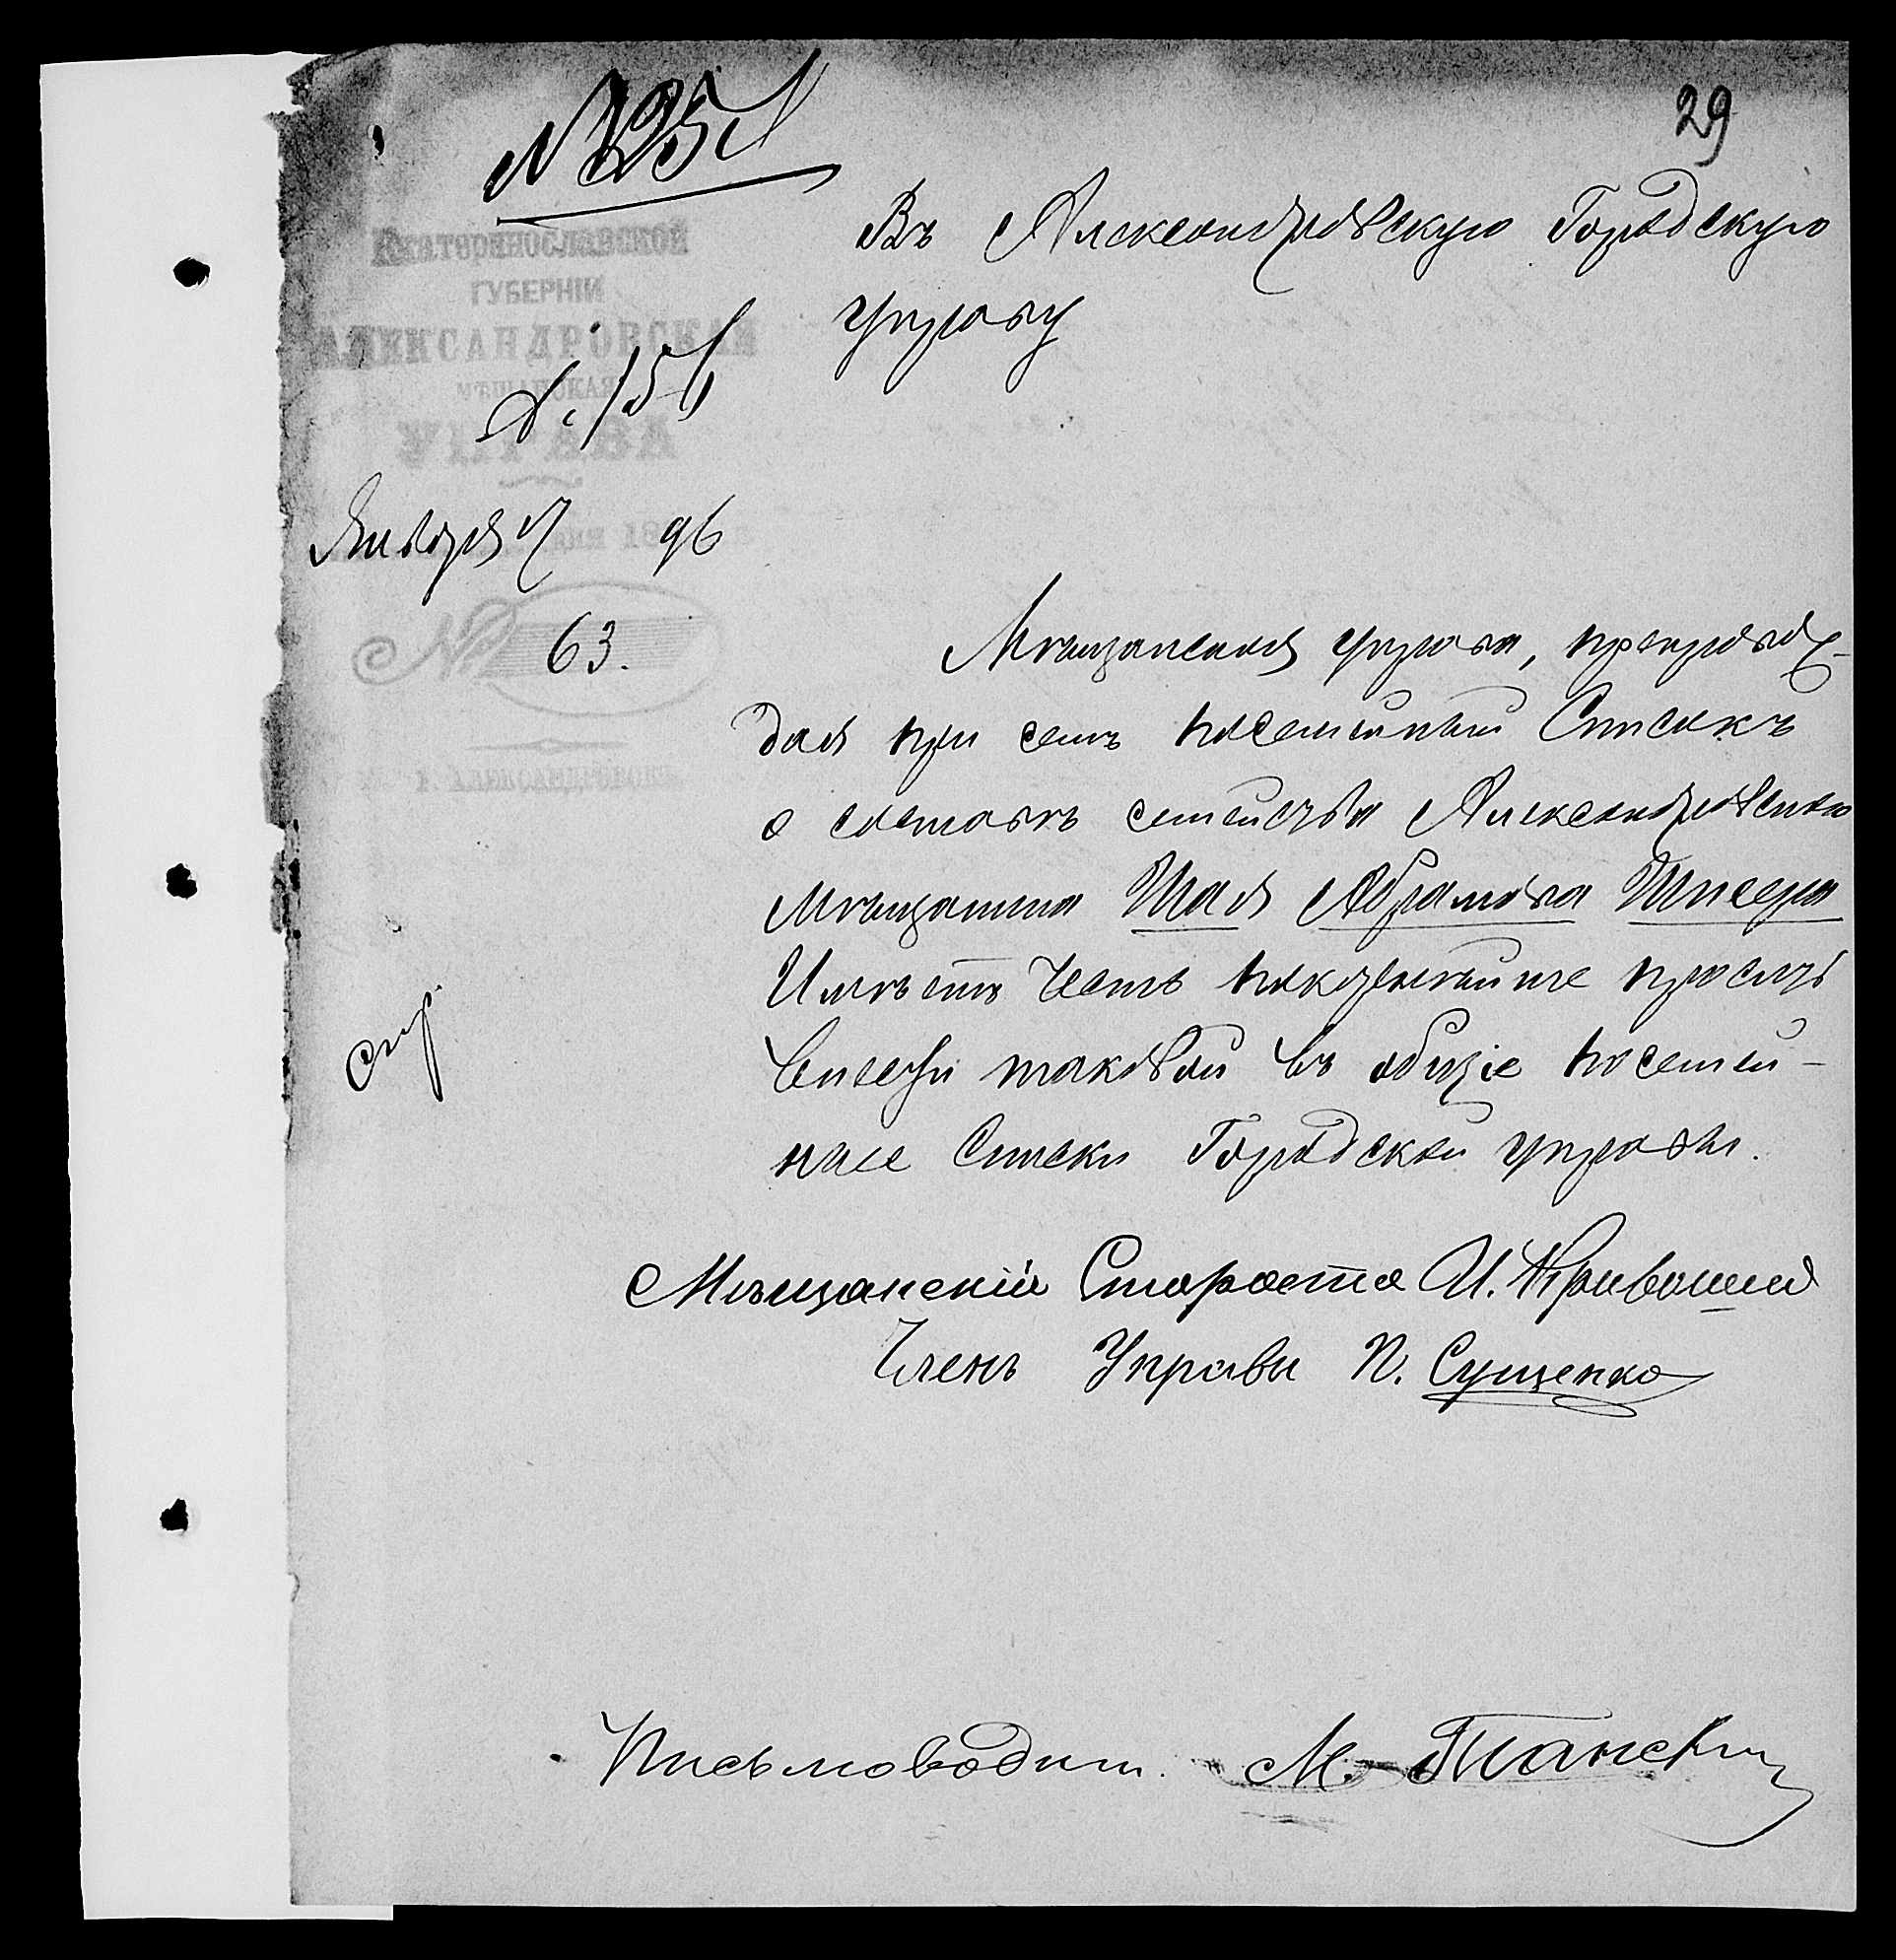 29
Екатеринославской
ГУБЕРНІИ
АЛЕКСАНДРОВСКАЯ
МѢЩАНСКАЯ
УПРАВА
Января 17 96
№ 63.
Г. АЛЕКСАНДРОВСКЪ
Въ Александровскую Городскую
управу
Мѣщанская управа, препровож-
дая при семъ посемейный Списокъ
о составѣ семейства Александровскаго
мѣщанина Шая Абрамова Шпеера
Имѣетъ честь покорнѣйше просить
внести таковой въ общіе посемей-
ные списки Городской управы.
Мѣщанскій Староста И.
Членъ Управы П. Сущенко
Письмоводит. М.